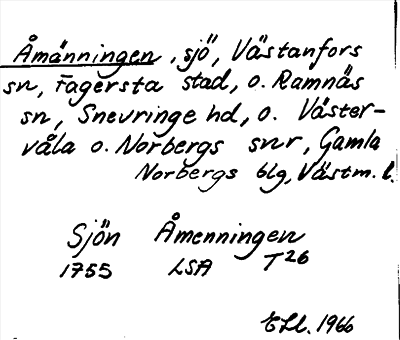 Åmänningen, sjö, Västanfors
sn, Fagersta stad, o. Ramnäs
sn, Snevringe hd, o. Väster-
våla o. Norbergs snr, Gamla
Norbergs blg, Västm. l.
Sjön Åmenningen
1755 LSA T26
1966